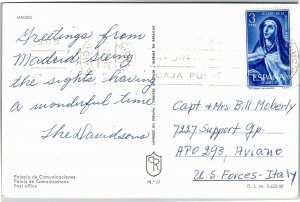 MADRID
Greetings from
Madrid seeing
the sights having
a wonderful time
The Davidsons
Palacio de Comunicaciones
Palais de Comunications
Post office
N.º 61
3
ESPAÑA
Capt & Mrs. Bill Moberly
7227 Support Gp.
APO 293, Aviano
U.S. Forces-Italy